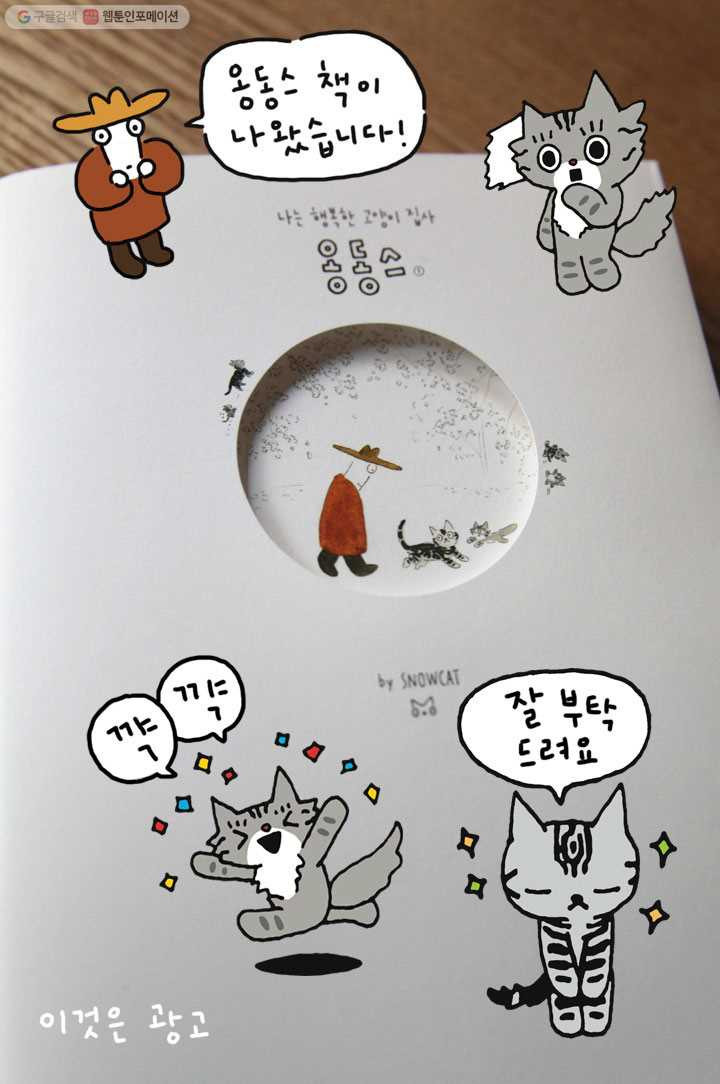 구글검색 웹툰인포메이션
옹동스 책이
나왔습니다!
나는 행복한 고양이 집사
옹동스 ①
by SNOWCAT
꺅
꺅
잘 부탁
드려요
이것은 광고